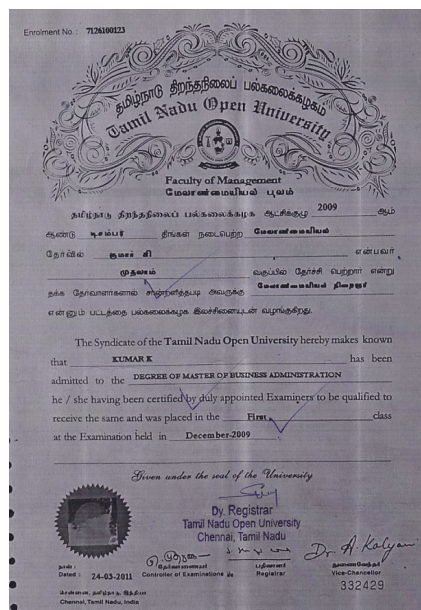 Enrolment No. : 7126100123
தமிழ்நாடு திறந்தநிலைப் பல்கலைக்கழகம்
Tamil Nadu Open University
Faculty of Management
மேலாண்மையியல் புலம்
தமிழ்நாடு திறந்தநிலைப் பல்கலைக்கழக ஆட்சிக்குழு 2009 ஆம்
ஆண்டு டிசம்பர் திங்கள் நடைபெற்ற மேலாண்மையியல்
தேர்வில் குமார் கி என்பவர்
முதலாம் வகுப்பில் தேர்ச்சி பெற்றார் என்று
தக்க தேர்வாளர்களால் சான்றளித்தபடி அவருக்கு மேலாண்மையியல் நிறைஞர்
என்னும் பட்டத்தை பல்கலைக்கழக இலச்சினையுடன் வழங்குகிறது.
The Syndicate of the Tamil Nadu Open University hereby makes known
that KUMAR K has been
admitted to the DEGREE OF MASTER OF BUSINESS ADMINISTRATION
he / she having been certified by duly appointed Examiners to be qualified to
receive the same and was placed in the First class
at the Examination held in December-2009
Given under the seal of the University
Dy. Registrar
Tamil Nadu Open University
Chennai, Tamil Nadu
Dr. A. Kalyani
நாள் : தேர்வாணையர் பதிவாளர் துணைவேந்தர்
Dated : 24-03-2011 Controller of Examinations Registrar Vice-Chancellor
332429
சென்னை, தமிழ்நாடு, இந்தியா
Chennai, Tamil Nadu, India